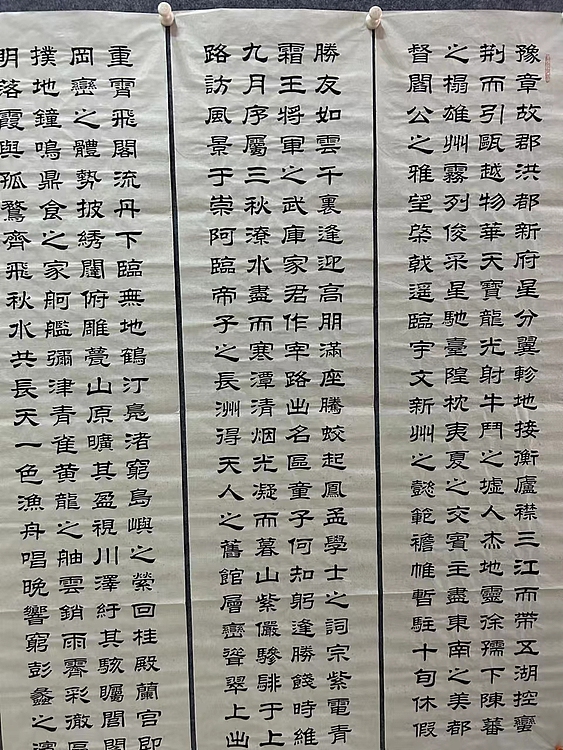 豫章故郡洪都新府星分翼軫地接衡廬襟三江而帶五湖控蠻
荆而引甌越物華天寶龍光射牛鬥之墟人杰地靈徐孺下陳蕃
之榻雄州霧列俊采星馳臺隍枕夷夏之交賓主盡東南之美都
督閻公之雅望棨戟遥臨宇文新州之懿範襜帷暫駐十旬休假
勝友如雲千裏逢迎高朋滿座騰蛟起鳳孟學士之詞宗紫電青
霜王將軍之武庫家君作宰路出名區童子何知躬逢勝餞時維
九月序屬三秋潦水盡而寒潭清烟光凝而暮山紫儼驂騑于上
路訪風景于崇阿臨帝子之長洲得天人之舊館層巒聳翠上出
重霄飛閣流丹下臨無地鶴汀凫渚窮島嶼之縈回桂殿蘭宫即
岡巒之體勢披綉闥俯雕甍山原曠其盈視川澤紆其駭矚閭閻
撲地鐘鳴鼎食之家舸艦彌津青雀黄龍之舳雲銷雨霽彩徹區
明落霞與孤鶩齊飛秋水共長天一色漁舟唱晚響窮彭蠡之濱